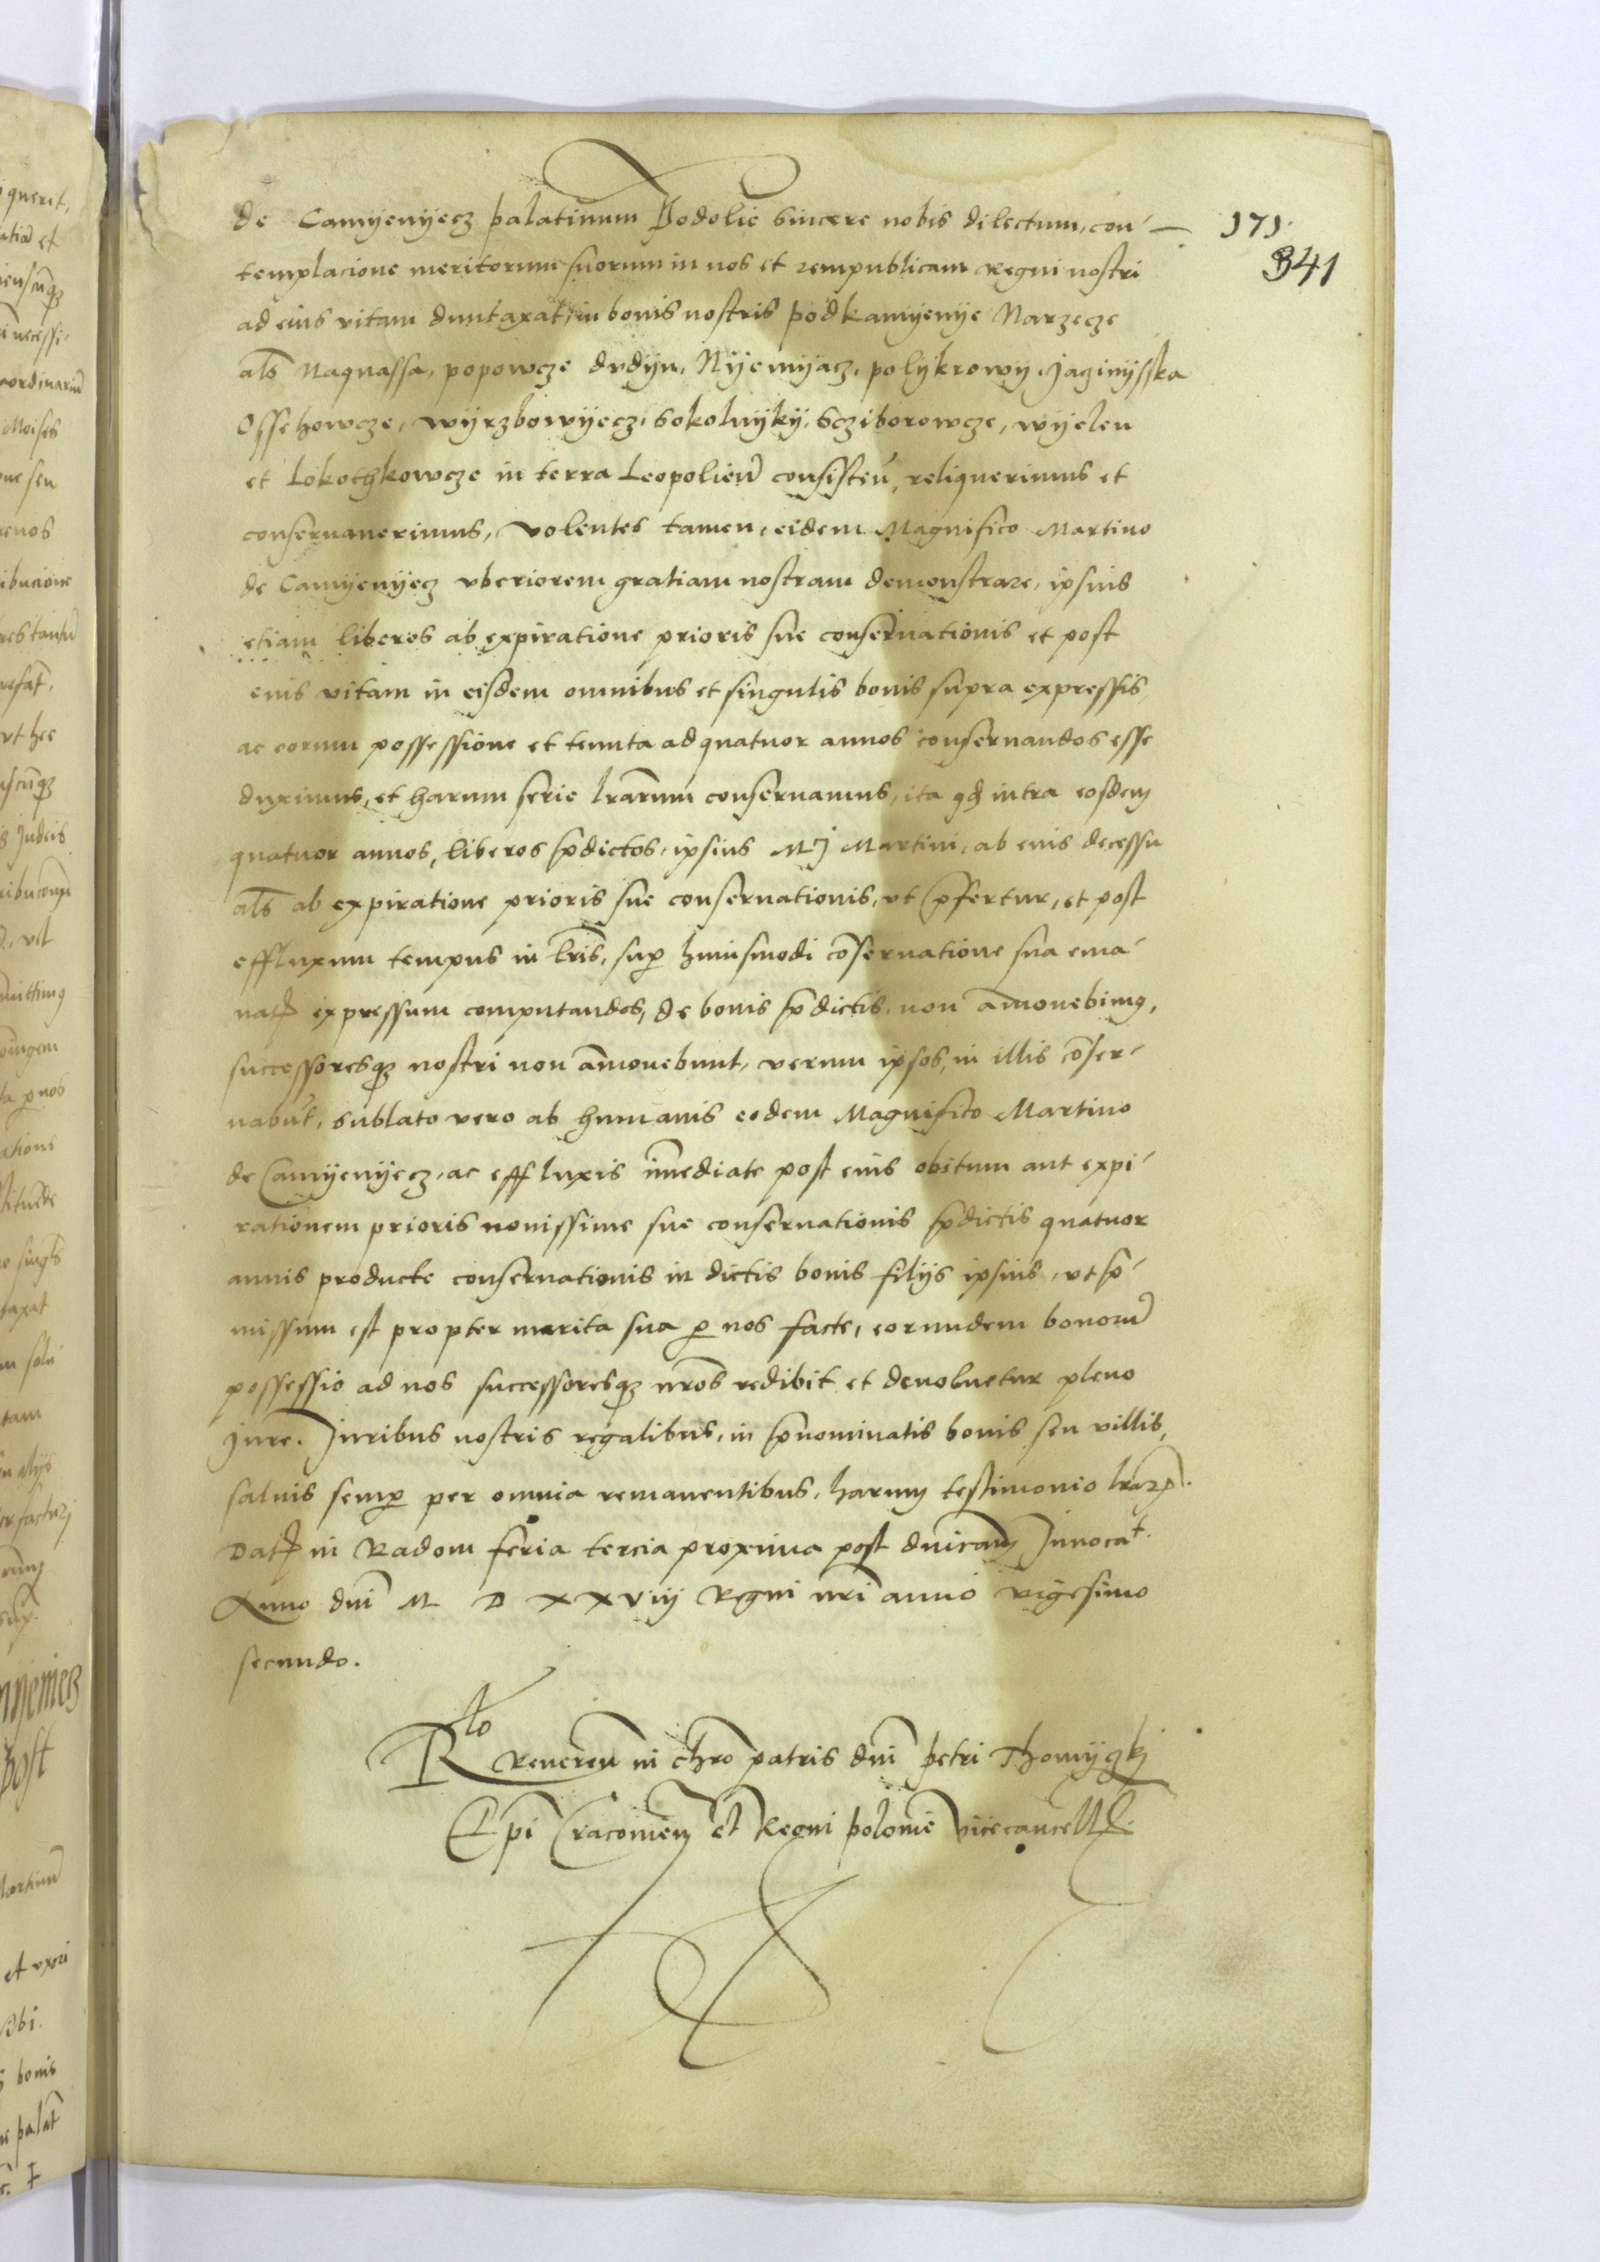 de Camyenyecz palatinum Podolie sincere nobis dilectum, con-
171.
341
templacione meritorum suorum in nos et rempublicam Regni nostri
ad eius vitam duntaxat, in bonis nostris podkamyenye Narzecze
als Naquassa, popowcze dudyn, Nyemyacz, polykrowy, Jaginysska
Ossehowcze, wyrzbowyecz, Sokolnyky, Scziborowcze, wyelen
et Lokothkowcze in terra Leopolien̄ consisten̄, reliquerimus et
conseruauerimus, volentes tamen, eidem Magnifico Martino
de Camyenyecz vberiorem gratiam nostram demonstrare, ipsius
etiam liberos ab expiratione prioris sue conseruationis et post
eius vitam in eisdem omnibus et singulis bonis supra expressis,
ac eorum possessione et tenuta ad quatuor annos conseruandos esse
duximus, et harum serie l̄rarum conseruamus, ita qd intra eosdem
quatuor annos, liberos p̄dictos, ipsius Mci Martini, ab eius decessu
als ab expiratione prioris sue conseruationis, vt p̄fertur, et post
effluxum tempus in l̄ris, sup huiusmodi cōseruatione sua ema-
nat expressum computandos, de bonis p̄dictis, non āmouebimq,
successoresqz nostri non āmouebunt, verum ipsos, in illis cōser-
uabūt, sublato vero ab humanis eodem Magnifico Martino
de Camyenyecz, ac effluxis īmediate post eius obitum aut expi-
rationem prioris nouissime sue conseruationis p̄dictis quatuor
annis producte conseruationis in dictis bonis filijs ipsius, vt p̄-
missum est propter merita sua p nos facte, eorundem bonorū
possessio ad nos successoresqz nr̄os redibit et deuoluetur pleno
Jure. Juribus nostris regalibus, in p̄nominatis bonis seu villis,
saluis semp per omnia remanentibus, harum testimonio l̄rar.
Dat in Radom feria tercia proxima post dn̄icam Inuocat.
Anno dn̄i M D XXViij Regni nr̄i anno vigesimo
secundo.
Rlo Reueren̄ in chro patris dn̄i petri Thomyczkj
Ep̄i Cracouien et Regni polonie vicecancell.